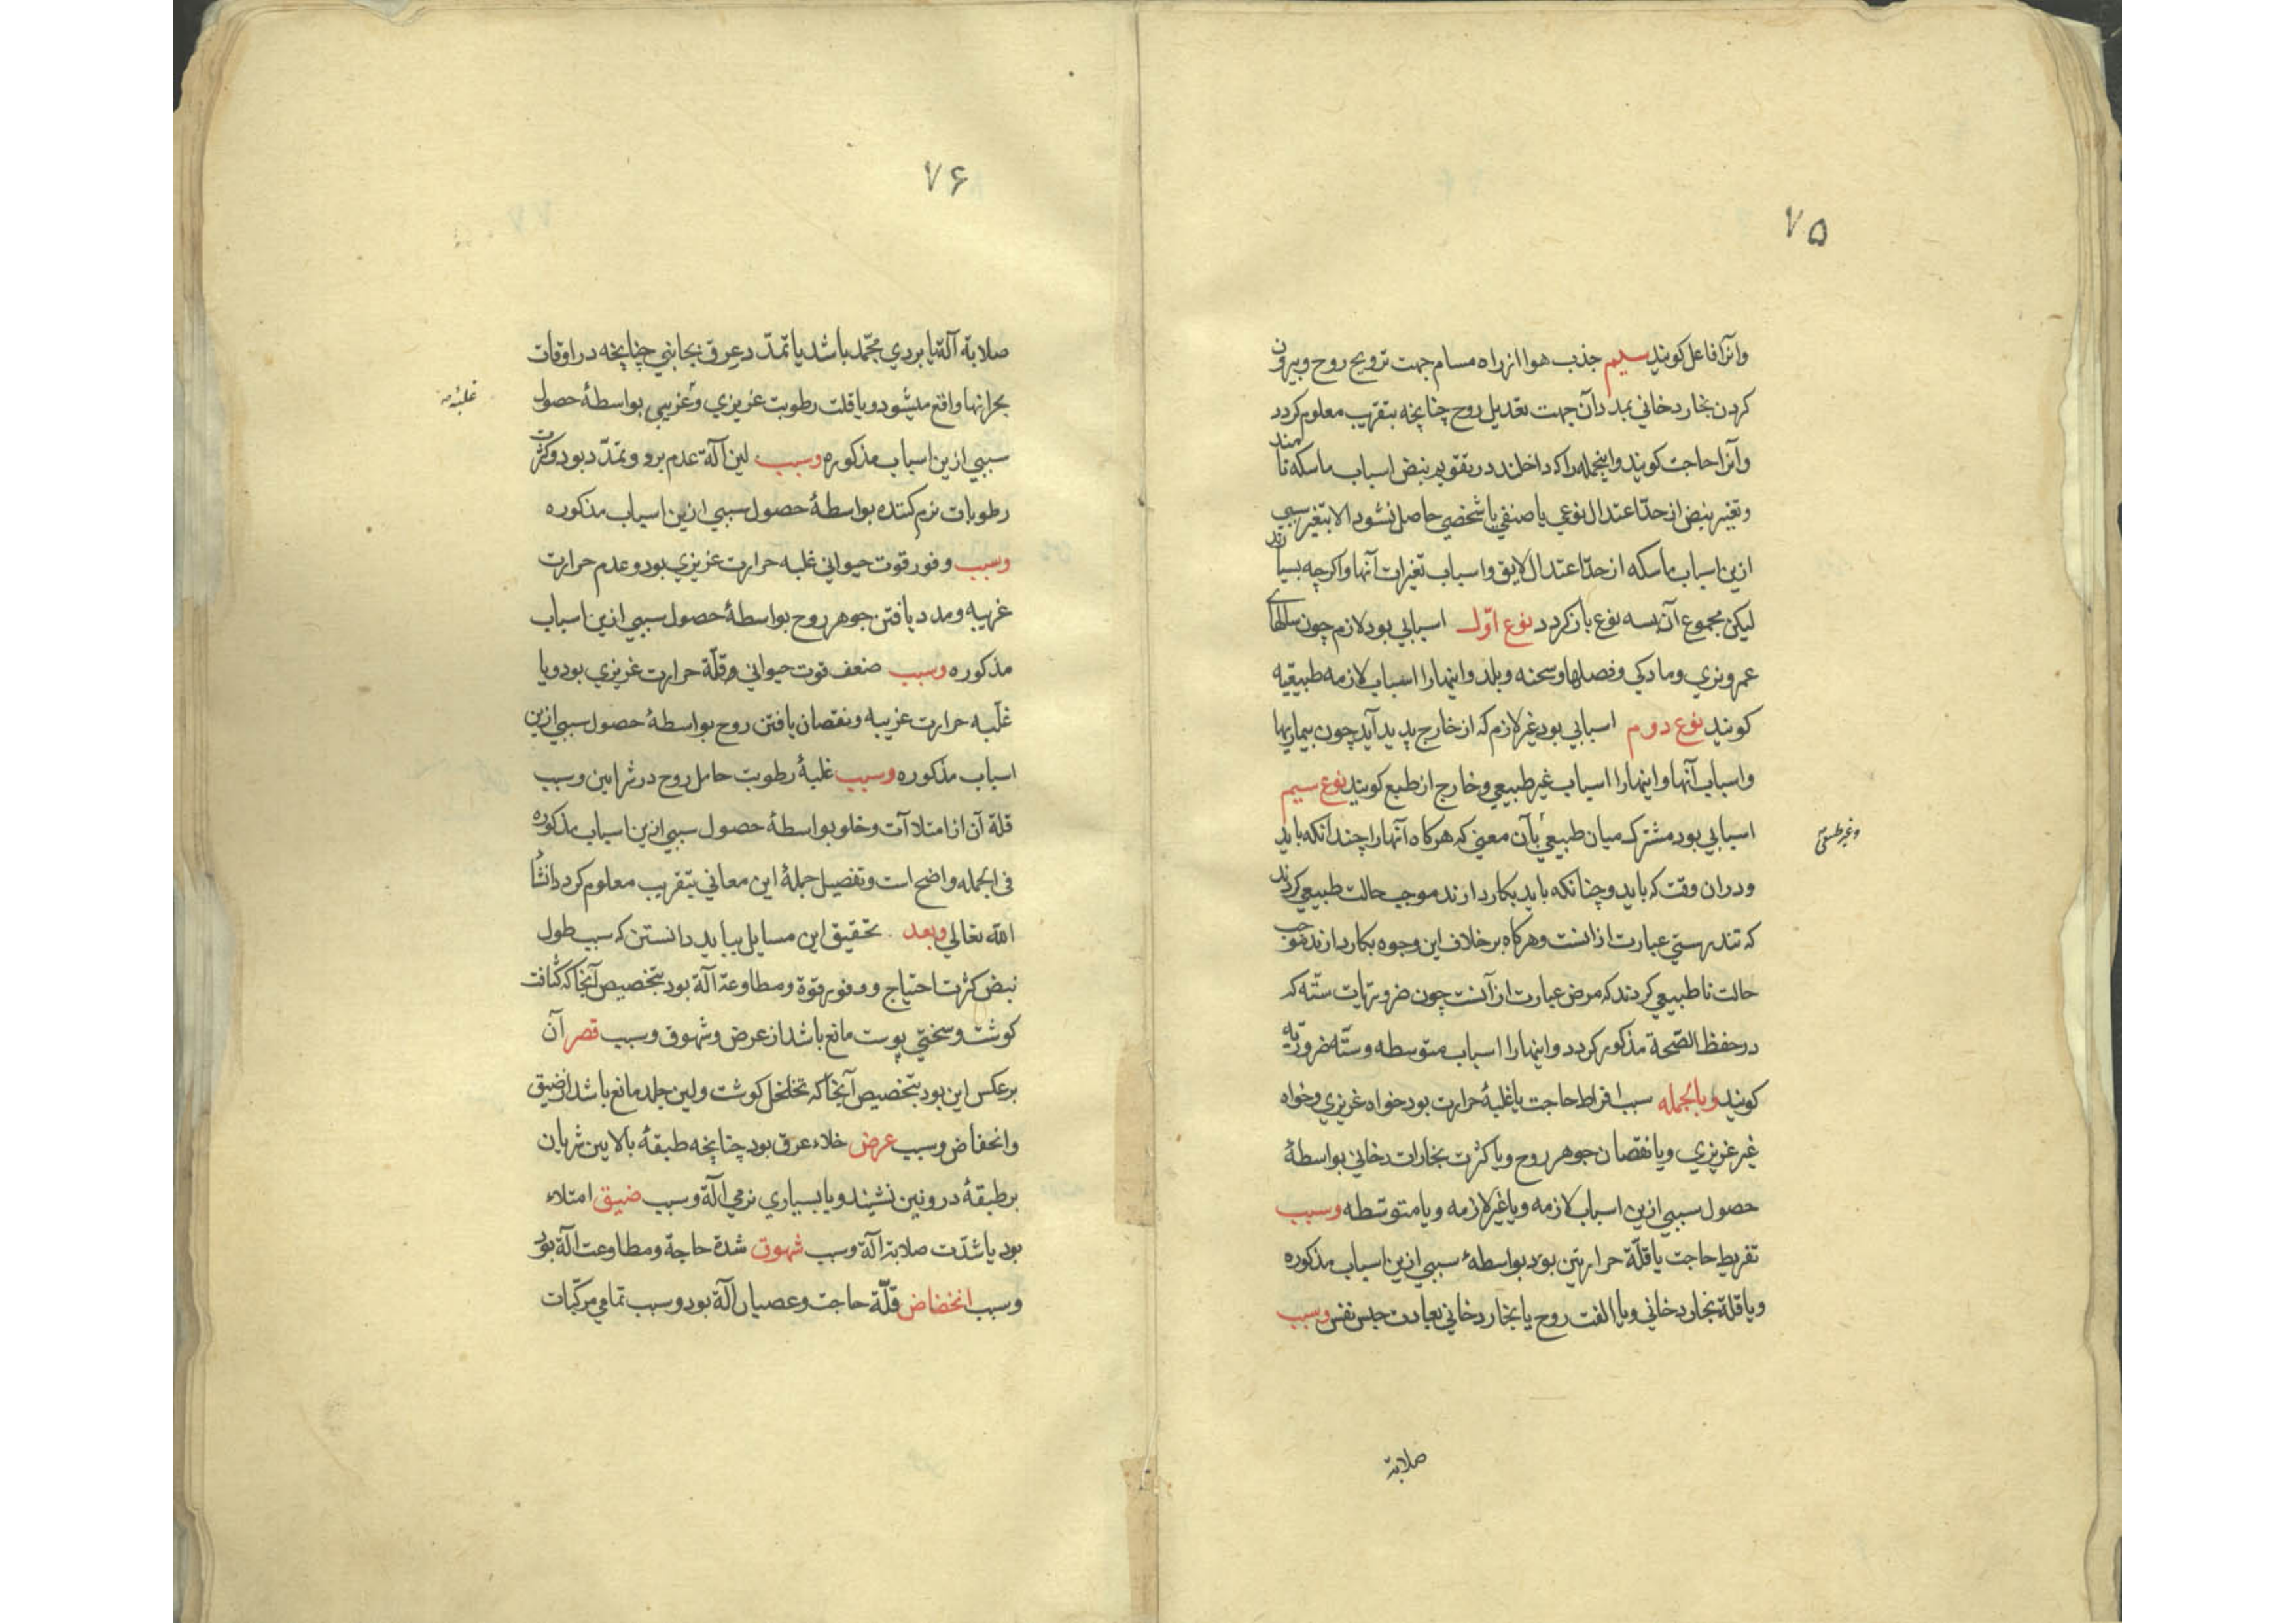 ۷۵
وانرا فاعل کویند سیم جذب هوا از راه مسام جهت ترویح روح و بیرون
کردن بخار دخانی بمدد آن جهت تعدیل روح چنانچه بتقریب معلوم کردد
وآنرا حاجت کویند واینجمله را که داخلند در تقویم نبض اسباب ماسکه نامند
وتغییر نبض از حدّ اعتدال نوعی یا صنفی یا شخصی حاصل نشود الا بتغیر سببی
ازین اسباب ماسکه از حدّ اعتدال لایق واسباب تغیرات آنها واکرچه بسیارند
لیکن مجموع آن بسه نوع باز کردد نوع اوّل اسبابی بود لازم چون سالهای
عمر ونری ومادکی وفصلها وسحنه وبلد واینها را اسباب لازمه طبیعیه
کویند نوع دوم اسبابی بود غیر لازم که از خارج پدید آید چون بیماریها
واسباب آنها واینها را اسباب غیر طبیعی وخارج از طبع کویند نوع سیم
اسبابی بود مشترک میان طبیعی بآن معنی که هرکاه آنها را چندانکه باید
وغیر طبیعی
ودران وقت که باید وچنانکه باید بکار دارند موجب حالت طبیعی کردند
که تندرستی عبارت ازانست وهرکاه برخلاف این وجوه بکار دارند موجب
حالت ناطبیعی کردند که مرض عبارت از آنست چون ضروریات ستّه که
در حفظ الصّحة مذکور کردد واینها را اسباب متوسطه وستّه ضروریّه
کویند وبالجمله سبب افراط حاجت یا غلبهٔ حرارت بود خواه غریزی وخواه
غیر غریزی ویا نقصان جوهر روح ویا کثرت بخارات دخانی بواسطهٔ
حصول سببی ازین اسباب لازمه ویا غیر لازمه ویا متوسّطه وسبب
تفریط حاجت یا قلّة حرارتین بود بواسطهٔ سببی ازین اسباب مذکوره
ویا قلة بخار دخانی ویا الفت روح با بخار دخانی بعادت حبس نفس وسبب
صلابة
۷۶
صلابة آلة یا بردی مجمّد باشد یا تمدّد عرق بجانبی چنانچه در اوقات
بحرانها واقع میشود ویا قلت رطوبت غریزی وغریبی بواسطهٔ حصول
غلبهٔ
سببی ازین اسباب مذکوره وسبب لین آلة عدم برو وتمدّد بود وکثرت
رطوبات نرم کننده بواسطهٔ حصول سببی ازین اسباب مذکوره
وسبب وفور قوت حیوانی غلبه حرارت غریزی بود وعدم حرارت
غریبه ومدد یافتن جوهر روح بواسطهٔ حصول سببی ازین اسباب
مذکوره وسبب ضعف قوت حیوانی وقلّة حرارت غریزی بود ویا
غلبه حرارت غریبه ونقصان یافتن روح بواسطهٔ حصول سببی ازین
اسباب مذکوره وسبب غلبهٔ رطوبت حامل روح در شرایین وسبب
قلة آن از امتلاآت وخلو بواسطهٔ حصول سببی ازین اسباب مذکوره
فی الجمله واضح است وتفصیل جملهٔ این معانی بتقریب معلوم کردد انشأ
الله تعالی وبعد تحقیق این مسایل بباید دانستن که سبب طول
نبض کثرت احتیاج ووفور قوة ومطاوعة آلة بود بتخصیص آنجا که کثافت
کوشت وسختی پوست مانع باشد از عرض وشهوق وسبب قصر آن
برعکس این بود بتخصیص آنجا که تخلخل کوشت ولین جلد مانع باشد از ضیق
وانحفاض وسبب عرض خلاء عرق بود چنانچه طبقهٔ بالایین شریان
بر طبقهٔ درونین نشیند ویا بسیاری نرمی آلة وسبب ضیق امتلاء
بود یا شدّت صلابة آلة وسبب شهوق شدة حاجة ومطاوعت آلة بود
وسبب انخفاض قلّة حاجت وعصیان آلة بود وسبب تمامی مرکبات